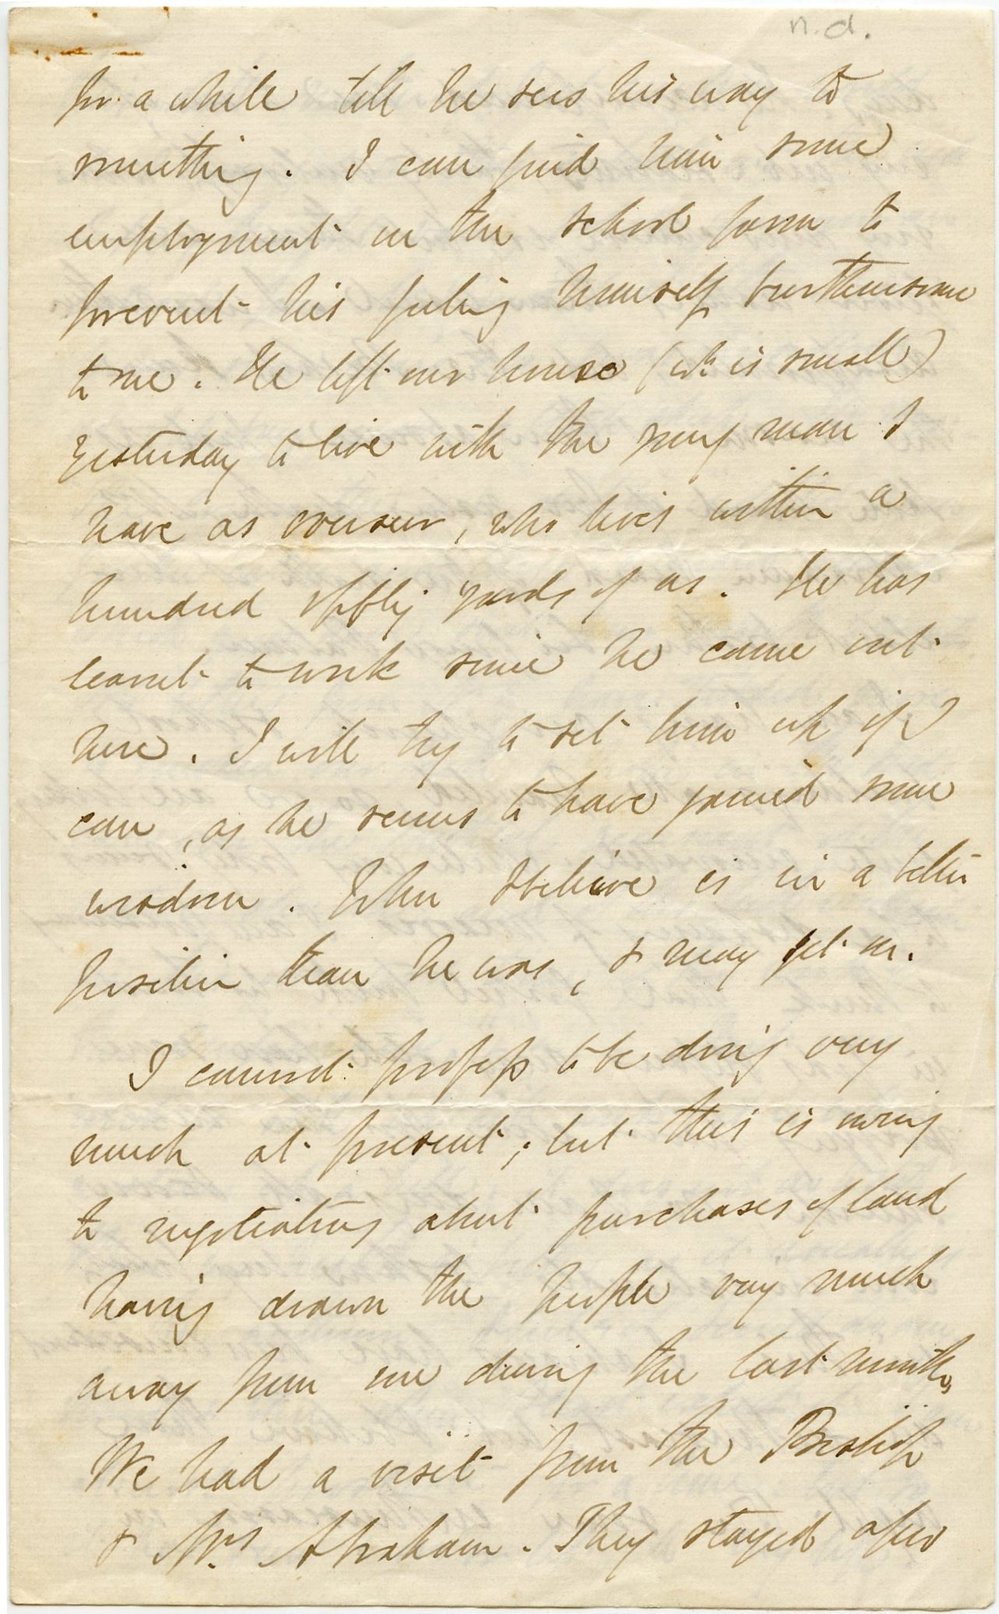 n.d.
for a while till he sees his way to
something. I can find him some
employment on the school farm to
prevent his feeling himself burthensome
to me. He left our house (wh. is small)
yesterday to live with the young man I
have as overseer, who lives within a
hundred & fifty yards of us. He has
learnt to work since he came out
here. I will try to set him up if I
can, as he seems to have gained some
wisdom. John I believe is in a better
position than he was, & may get on.
I cannot profess to be doing very
much at present; but this is owing
to negotiations about purchases of land
having drawn the people very much
away from me during the last months,
We had a visit from the Bishop
& Mrs Abraham. They stayed a few